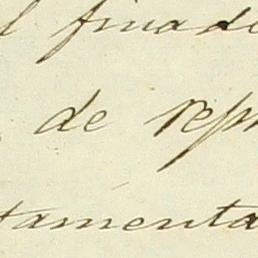 l finad
de rep
tamenta